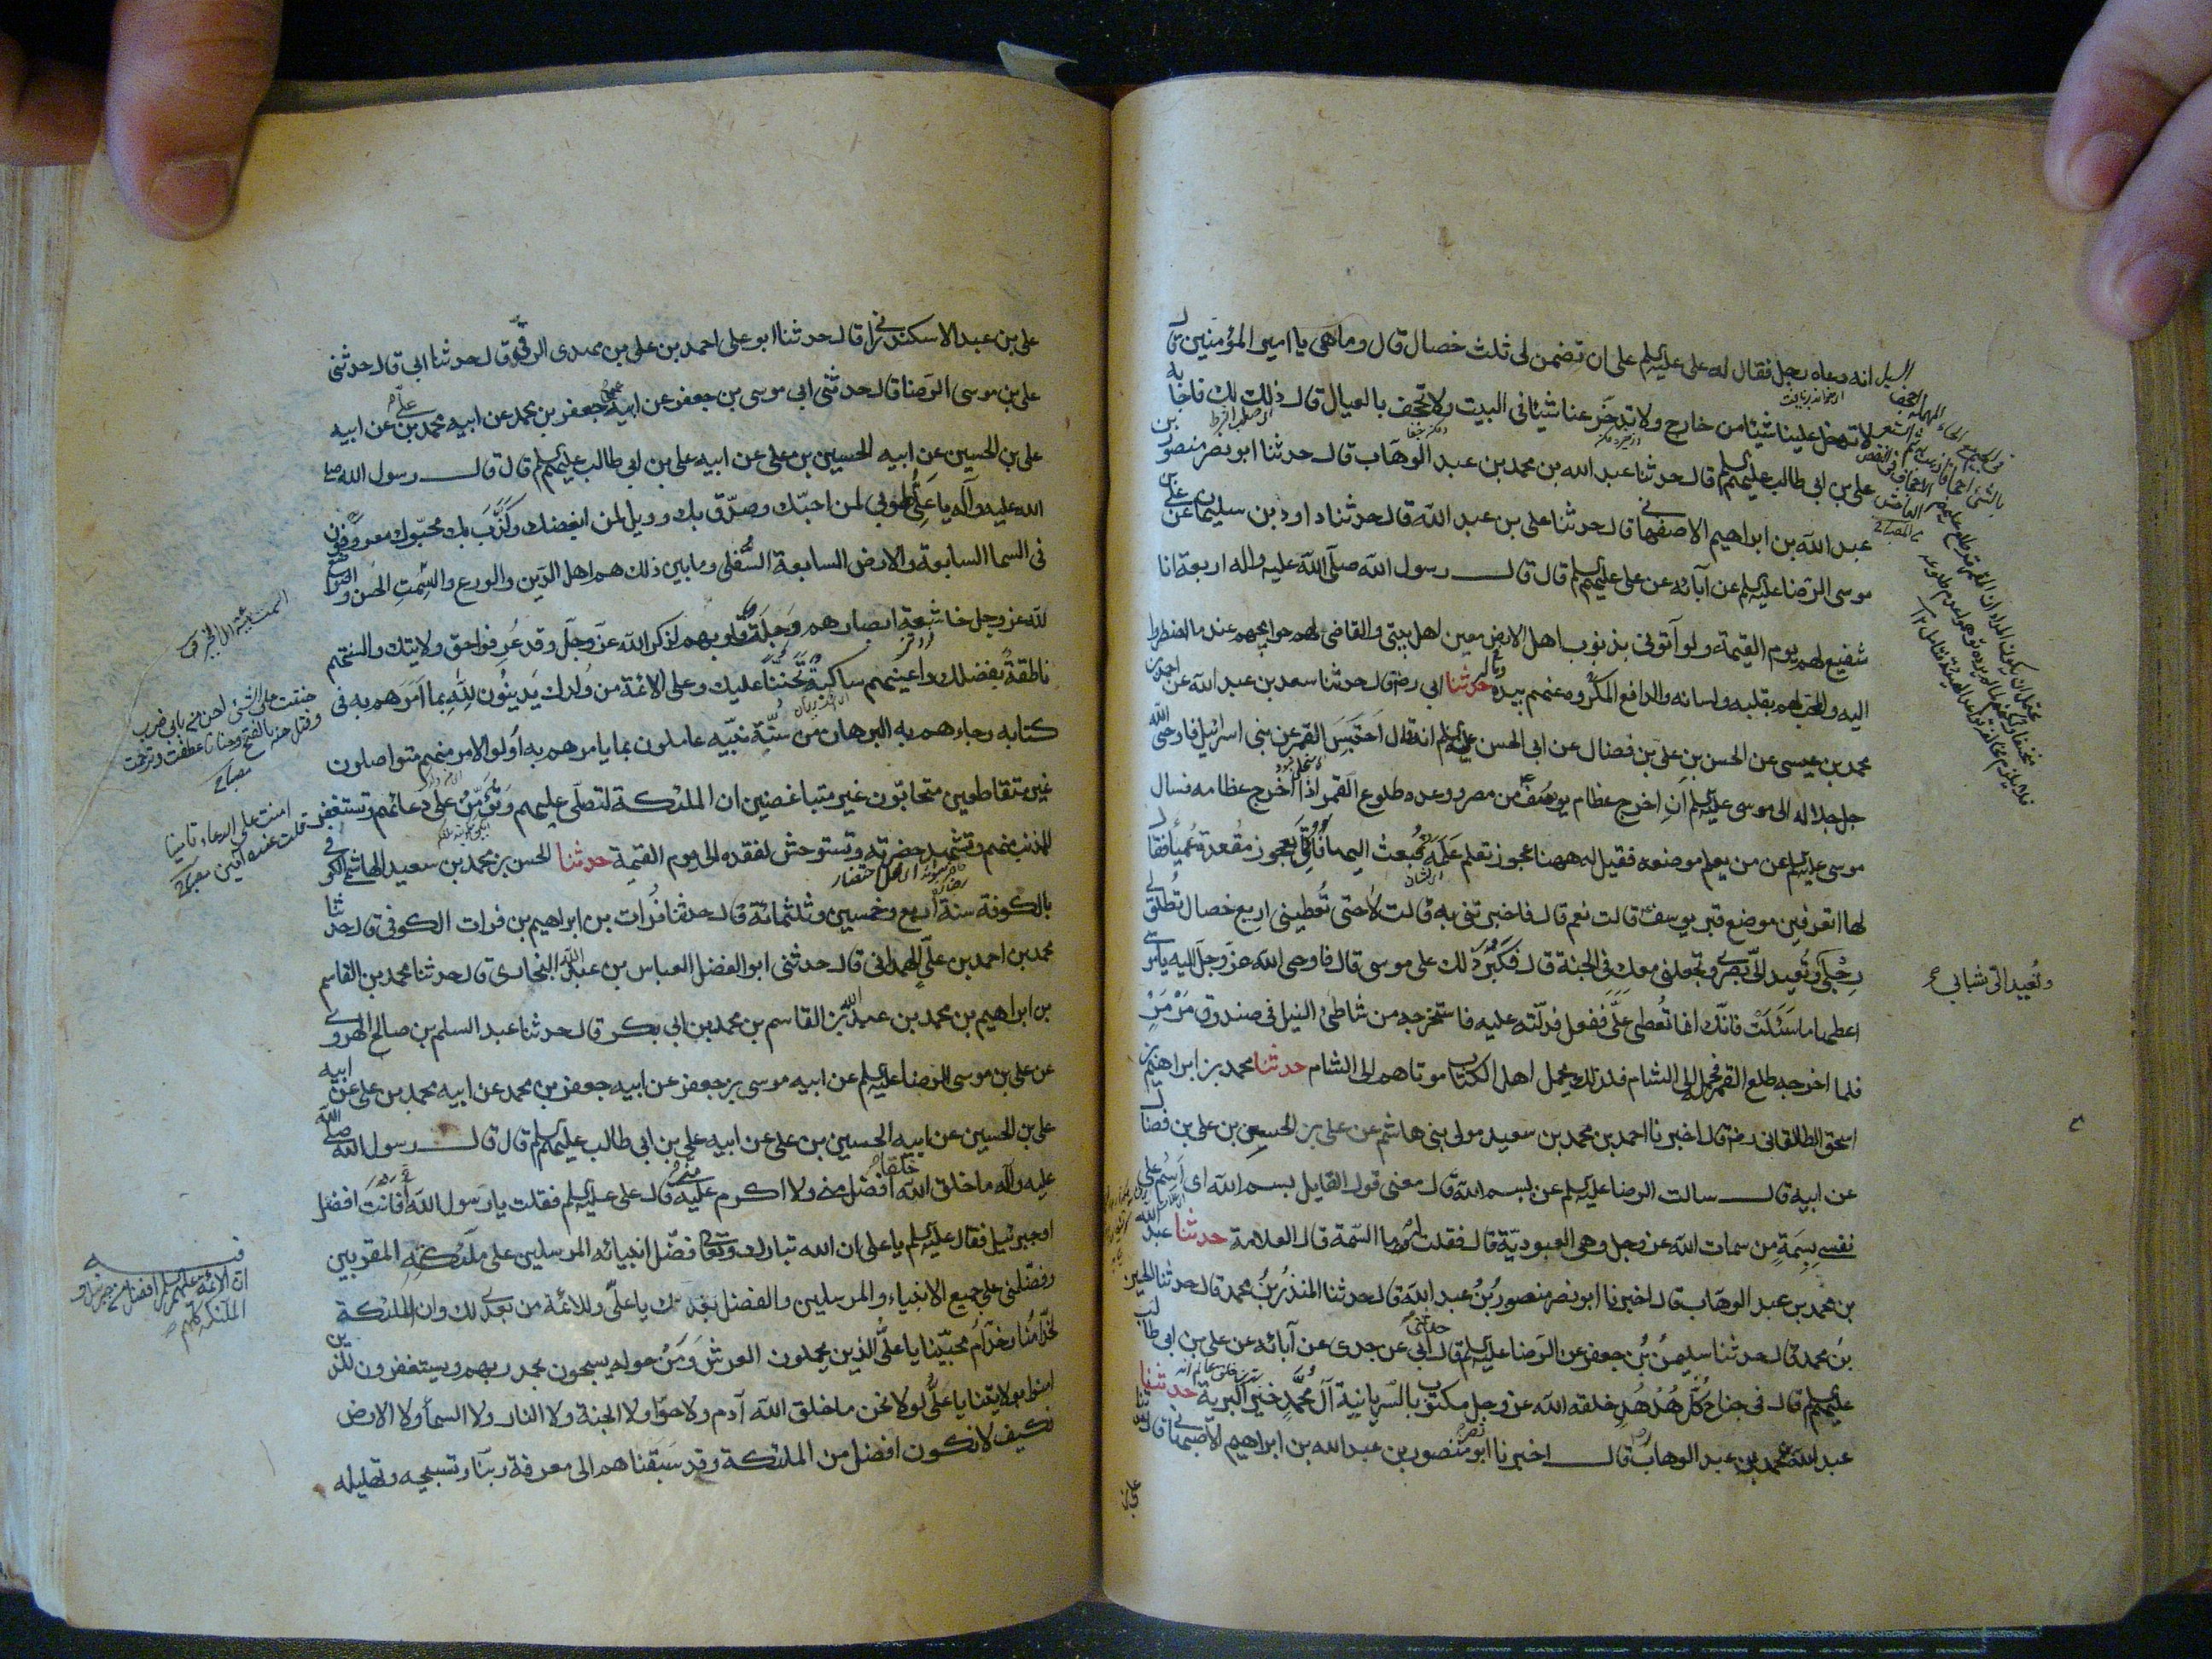 انه دعاه رجل فقال له على عليه السلم على ان تضمن لى ثلث خصال قال وما هى يا امير المؤمنين قال
لا تدخل علينا شيئا من خارج ولا تدخر عنا شيئا فى البيت ولا تجحف بالعيال قال ذلك لك فاجابه
على بن ابى طالب عليهم السلم قال حدثنا عبد الله بن محمد بن عبد الوهاب قال حدثنا ابو نصر منصور بن
عبد الله بن ابراهيم الاصفهانى قال حدثنا على بن عبد الله قال حدثنا داود بن سليمان عن على بن
موسى الرضا عليه السلم عن آبائه عن على عليهم السلم قال قال رسول الله صلى الله عليه واله اربعة انا
شفيع لهم يوم القيمة ولو آتونى بذنوب اهل الارض معين اهل بيتى والقاضى لهم حوايجهم عند ما اضطروا
اليه والمحب لهم بقلبه ولسانه والدافع المكروه عنهم بيده حدثنا ابى رضه قال حدثنا سعد بن عبد الله عن احمد بن
محمد بن عيسى عن الحسن بن على بن فضال عن ابى الحسن عليه السلم انه قال احتبس القمر عن بنى اسرائيل فاوحى الله
جل جلاله الى موسى عليه السلم ان اخرج عظام يوسف من مصر ووعده طلوع القمر اذا اخرج عظامه فسال
موسى عليه السلم عن من يعلم موضعه فقيل له ههنا عجوز تعلم علمه فبعث اليها فاتى بعجوز مقعدة عمياء فقال
لها اتعرفين موضع قبر يوسف قالت نعم قال فاخبرينى به قالت لا حتى تعطينى اربع خصال تطلق لى
رجلى وتعيد الىّ بصرى وتجعلنى معك فى الجنة قال فكبر ذلك على موسى قال فاوحى الله عز وجل اليه يا موسى
وتعيد الىّ شبابى
اعطها ما سئلت فانك انما تعطى علىّ ففعل فدلته عليه فاستخرجه من شاطئ النيل فى صندوق مرمر
فلما اخرجه طلع القمر فحمله الى الشام فلذلك يحمل اهل الكتاب موتاهم الى الشام حدثنا محمد بن ابراهيم بن
اسحق الطالقانى رضه قال اخبرنا احمد بن محمد بن سعيد مولى بنى هاشم عن على بن الحسن بن على بن فضال
عن ابيه قال سالت الرضا عليه السلم عن بسم الله قال معنى قول القايل بسم الله اى اسم على
نفسى بسمة من سمات الله عز وجل وهى العبودية قال فقلت له وما السمة قال العلامة حدثنا عبد الله
بن محمد بن عبد الوهاب قال اخبرنا ابو نصر منصور بن عبد الله قال حدثنا المنذر بن محمد قال حدثنا الحسين
بن محمد قال حدثنا سليمن بن جعفر عن الرضا عليه السلم قال حدثنى ابى عن جدى عن آبائه عن على بن ابى طالب
عليهم السلم قال فى جناح كل هدهد خلقه الله عز وجل مكتوب بالسريانية آل محمد خير البرية حدثنا
عبد الله محمد بن عبد الوهاب قال اخبرنا ابو نصر منصور بن عبد الله بن ابراهيم الاصبهانى قال حدثنا
على بن
على بن عبد الاسكندرانى قال حدثنا ابو على احمد بن على بن مهدى الرقى قال حدثنا ابى قال حدثنى
على بن موسى الرضا قال حدثنى ابى موسى بن جعفر عن ابيه جعفر بن محمد عن ابيه محمد بن على عن ابيه
على بن الحسين عن ابيه الحسين بن على عن ابيه على بن ابى طالب عليهم السلم قال قال رسول الله صلى
الله عليه وآله يا على طوبى لمن احبك وصدق بك وويل لمن ابغضك وكذب بك محبوك معروفون
فى السما السابعة والارض السابعة السفلى وما بين ذلك هم اهل الدين والورع والسمت الحسن والتواضع
لله عز وجل خاشعة ابصارهم وجلة قلوبهم لذكر الله عز وجل وقد عرفوا حق ولايتك والسنتهم
ناطقة بفضلك واعينهم ساكبة تحننا عليك وعلى الائمة من ولدك يدينون لله بما امرهم به فى
كتابه وجاءهم به البرهان من سنة نبيه عاملون بما يامرهم به اولوا الامر منهم متواصلون
غير متقاطعين متحابون غير متباغضين ان الملئكة لتصلى عليهم وتؤمن على دعائهم وتستغفر
للمذنب منهم وتشهد حضرته وتستوحش لفقده الى يوم القيمة حدثنا الحسن بن محمد بن سعيد الهاشمى الكوفى
بالكوفة سنة اربع وخمسين وثلثمائة قال حدثنا فرات بن ابراهيم بن فرات الكوفى قال حدثنا
محمد بن احمد بن على الهمدانى قال حدثنى ابو الفضل العباس بن عبد الله البخارى قال حدثنا محمد بن القاسم
بن ابراهيم بن محمد بن عبد الله بن القاسم بن محمد بن ابى بكر قال حدثنا عبد السلم بن صالح الهروى
عن على بن موسى الرضا عليه السلم عن ابيه موسى بن جعفر عن ابيه جعفر بن محمد عن ابيه محمد بن على عن ابيه
على بن الحسين عن ابيه الحسين بن على عن ابيه على بن ابى طالب عليهم السلم قال قال رسول الله صلى الله
عليه وآله ما خلق الله خلقا افضل منى ولا اكرم عليه منى قال على عليه السلم فقلت يا رسول الله أفانت افضل
او جبرئيل فقال عليه السلم يا على ان الله تبارك وتعالى فضل انبيائه المرسلين على ملئكته المقربين
وفضلنى على جميع الانبياء والمرسلين والفضل بعدى لك يا على وللائمة من بعدك وان الملئكة
لخدامنا وخدام محبينا يا على الذين يحملون العرش ومن حوله يسبحون بحمد ربهم ويستغفرون للذين
امنوا بولايتنا يا على لولا نحن ما خلق الله آدم ولا حوا ولا الجنة ولا النار ولا السماء ولا الارض
فكيف لا نكون افضل من الملئكة وقد سبقناهم الى معرفة ربنا وتسبيحه وتهليله
ان الائمة عليهم السلم افضل من جبرئيل و
الملئكة كلهم